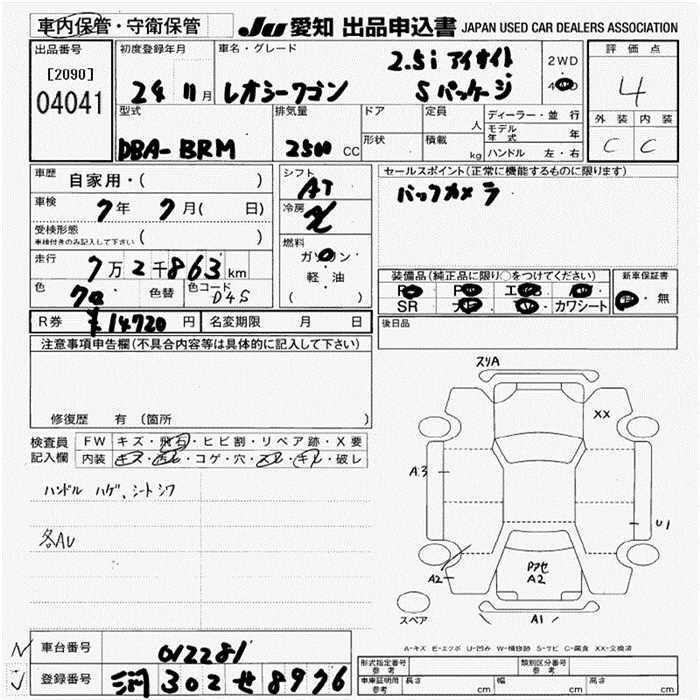 車内保管・守衛保管 JU 愛知 出品申込書 JAPAN USED CAR DEALERS ASSOCIATION
出品番号 初度登録年月 車名・グレード 2.5i アイサイト 2WD 評価点
[2090] 24 11月 レガシーワゴン Sパッケージ 4WD 4
04041 外装 内装
型式 排気量 ドア 定員 人 ディーラー・並行 C C
DBA-BRM 2500 CC 形状 積載 kg モデル年式 年
ハンドル 左・右
車歴 自家用・( ) シフト AT セールスポイント(正常に機能するものに限ります)
車検 7年 7月( 日) 冷房 バックカメラ
受検形態 車検付きのみ記入して下さい ( ) 燃料
走行 7万2千863km ガソリン
軽・油
( )
装備品(純正品に限り○をつけてください) 新車保証書
色 色替 色コード D4S SR カワシート 有・無
R券 ¥14720円 名変期限 月 日 後日品
注意事項申告欄(不具合内容等は具体的に記入して下さい)
修復歴 有(箇所 )
検査員 FW キズ・飛石・ヒビ割・リペア跡・X要
記入欄 内装 キズ・汚レ・コゲ・穴・スレ・キレ・破レ
ハンドル ハゲ、シートシワ
各AU
スリA
XX
A3
U1
A2
A2
スペア
A1
A-キズ E-エクボ U-凹み W-補修跡 S-サビ C-腐食 XX-交換済
車台番号 012281
登録番号 302 せ 8976
形式指定番号 参考 類別区分番号 参考
車庫証明用 参考 長さ cm 幅 cm 高さ cm